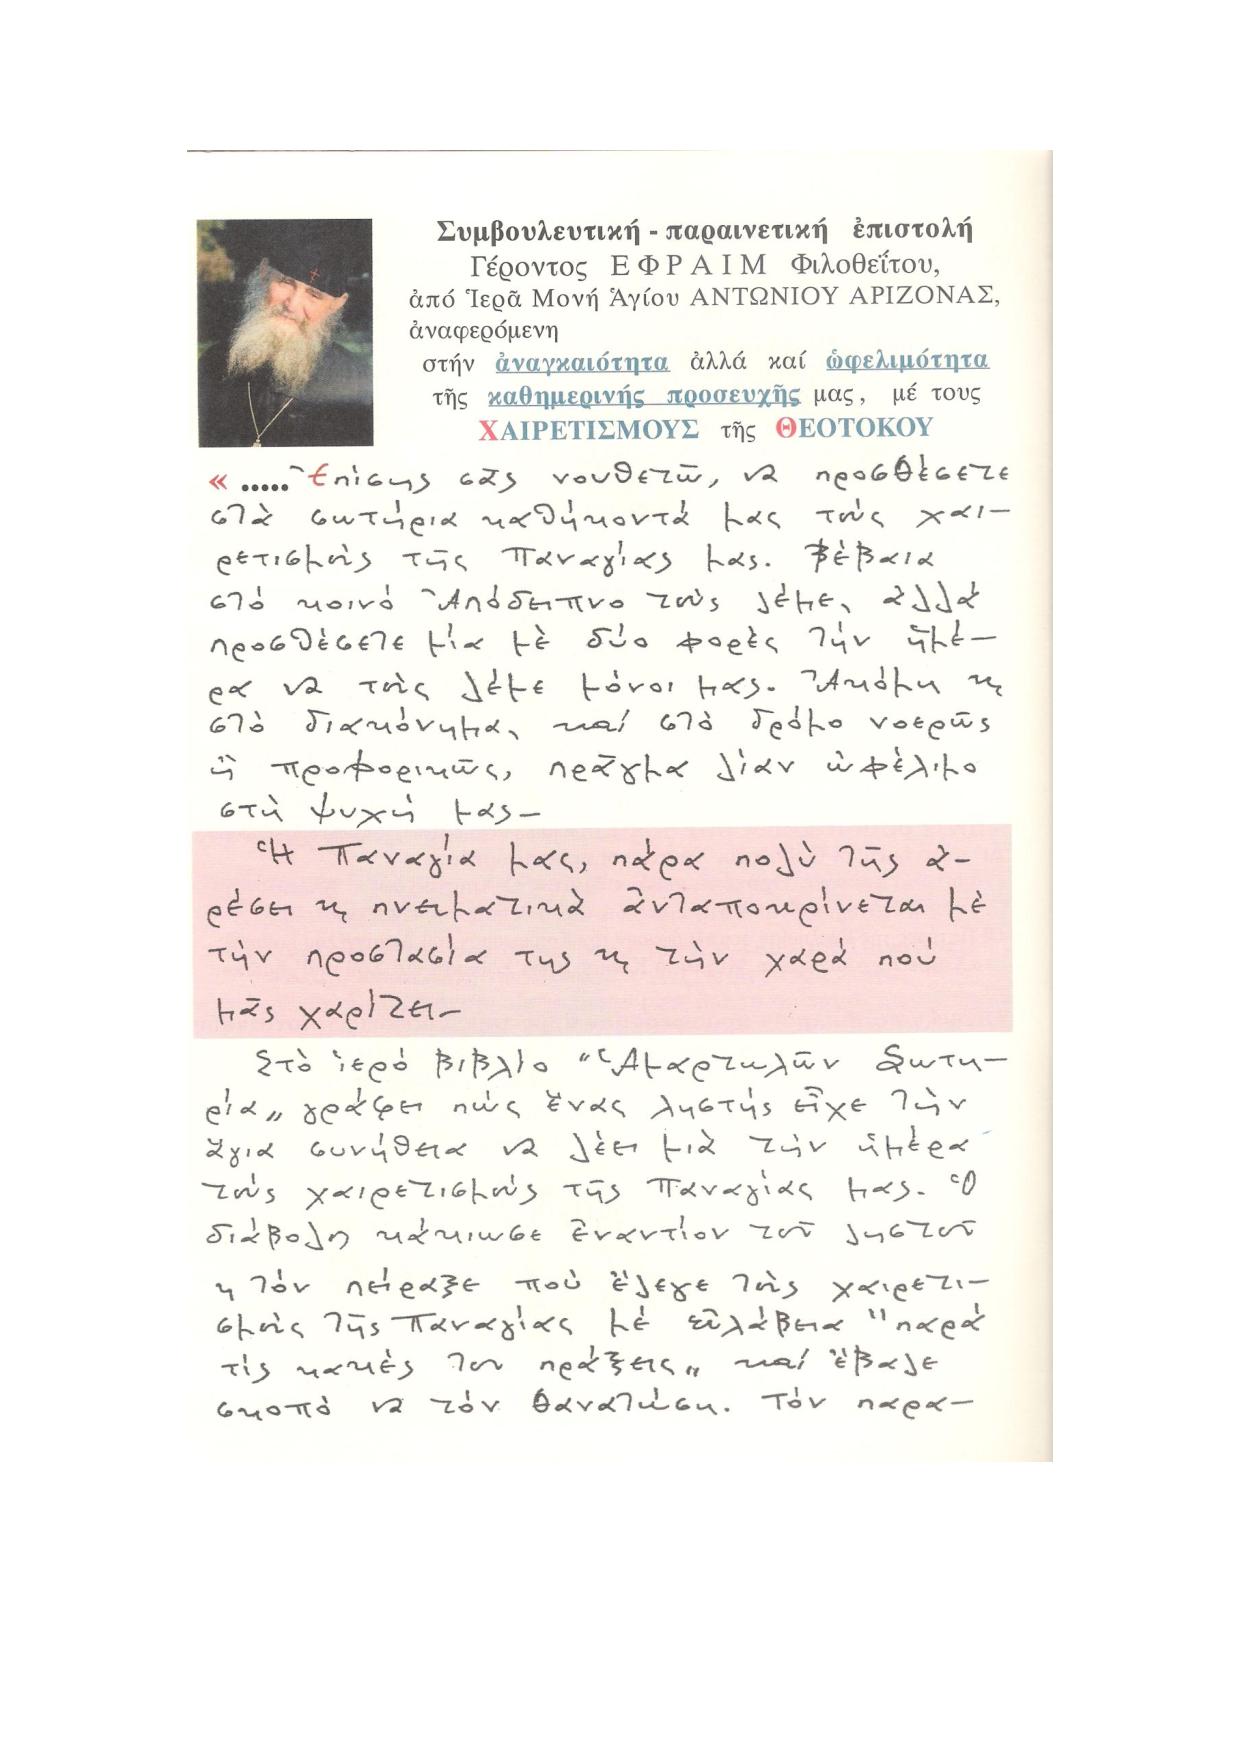 Συμβουλευτική - παραινετική ἐπιστολή
Γέροντος ΕΦΡΑΙΜ Φιλοθεΐτου,
ἀπό Ἱερᾶ Μονή Ἁγίου ΑΝΤΩΝΙΟΥ ΑΡΙΖΟΝΑΣ,
ἀναφερόμενη
στήν ἀναγκαιότητα ἀλλά καί ὠφελιμότητα
τῆς καθημερινής προσευχῆς μας, μέ τους
ΧΑΙΡΕΤΙΣΜΟΥΣ τῆς ΘΕΟΤΟΚΟΥ
« ..... Ἐπίσης σᾶς νουθετῶ, νὰ προσθέσετε
στὰ σωτήρια καθήκοντά μας τοὺς χαι-
ρετισμοὺς τῆς Παναγίας μας. Βέβαια
στό κοινό Ἀπόδειπνο τοὺς λέμε, ἀλλά
προσθέσετε μία μὲ δύο φορὲς τὴν ἡμέ-
ρα νὰ τοὺς λέμε μόνοι μας. Ἀκόμη ϗ
στὸ διακόνημα, καί στὸ δρόμο νοερῶς
ἢ προφορικῶς, πρᾶγμα λίαν ὠφέλιμο
στὴ ψυχή μας-
Ἡ Παναγία μας, πάρα πολὺ τῆς ἀ-
ρέσει ϗ πνευματικὰ ἀνταποκρίνεται μὲ
τὴν προστασία της ϗ τὴν χαρά πού
μᾶς χαρίζει-
Στὸ ἱερό βιβλίο "Ἁμαρτωλῶν Σωτη-
ρία„ γράφει πώς ἕνας ληστής εἶχε τὴν
ἅγια συνήθεια νὰ λέει μιὰ τὴν ἡμέρα
τοὺς χαιρετισμοὺς τῆς Παναγίας μας. Ὁ
διάβολος κάκιωσε ἐναντίον τοῦ ληστοῦ
ϗ τόν πείραξε ποὺ ἔλεγε τοὺς χαιρετι-
σμοὺς τῆς Παναγίας μέ εὐλάβεια "παρά
τὶς κακὲς του πράξεις„ καί ἔβαλε
σκοπὸ νὰ τόν θανατώση. Τόν παρα-